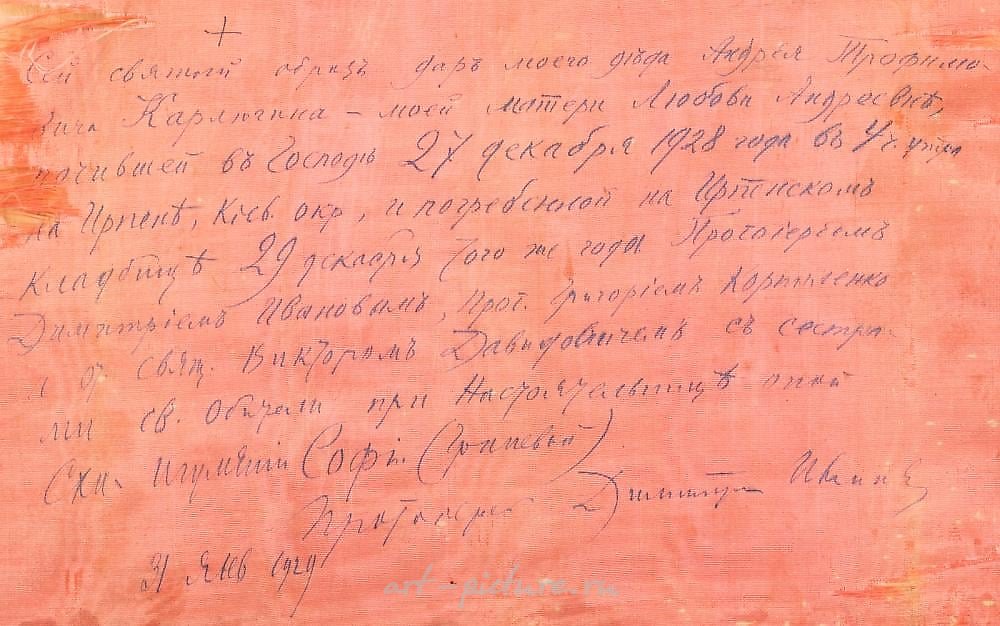 +
Сей святой образъ даръ моего дѣда Андрея Трофимо-
вича Карлюгина – моей матери Любови Андреевнѣ,
почившей въ Господѣ 27 декабря 1928 года въ 4 ч. утра
на Ирпенѣ, Кіев. окр, и погребенной на Ирпенскомъ
кладбищѣ 29 декабря того же года Протоіереемъ
Димитріемъ Ивановымъ, прот. Григоріемъ
и свящ. Викторомъ Давидовичемъ съ сестра-
ми св. Обители при Настоятельницѣ оной
Схи- игуменіи Софіи (Гриневой)
Протоиерей Димитрій
31 Янв 1929
art-picture.ru